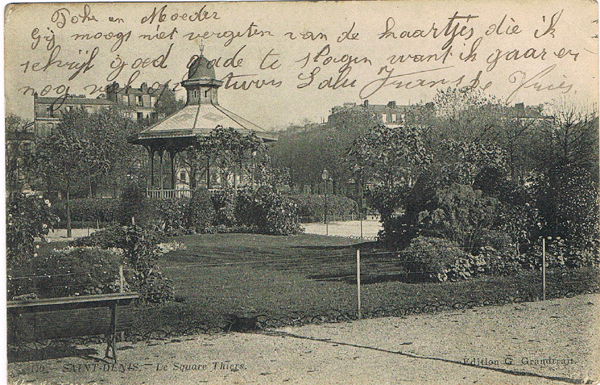 Pake en Moeder
Gij moogs niet vergeten van de kaartjes die ik
schrijf goed gade te slagen want ik gaar er
nog veel op twös Salu Franske Friè
SAINT-DENIS. — Le Square Thiers.
Edition G. Grandpair.